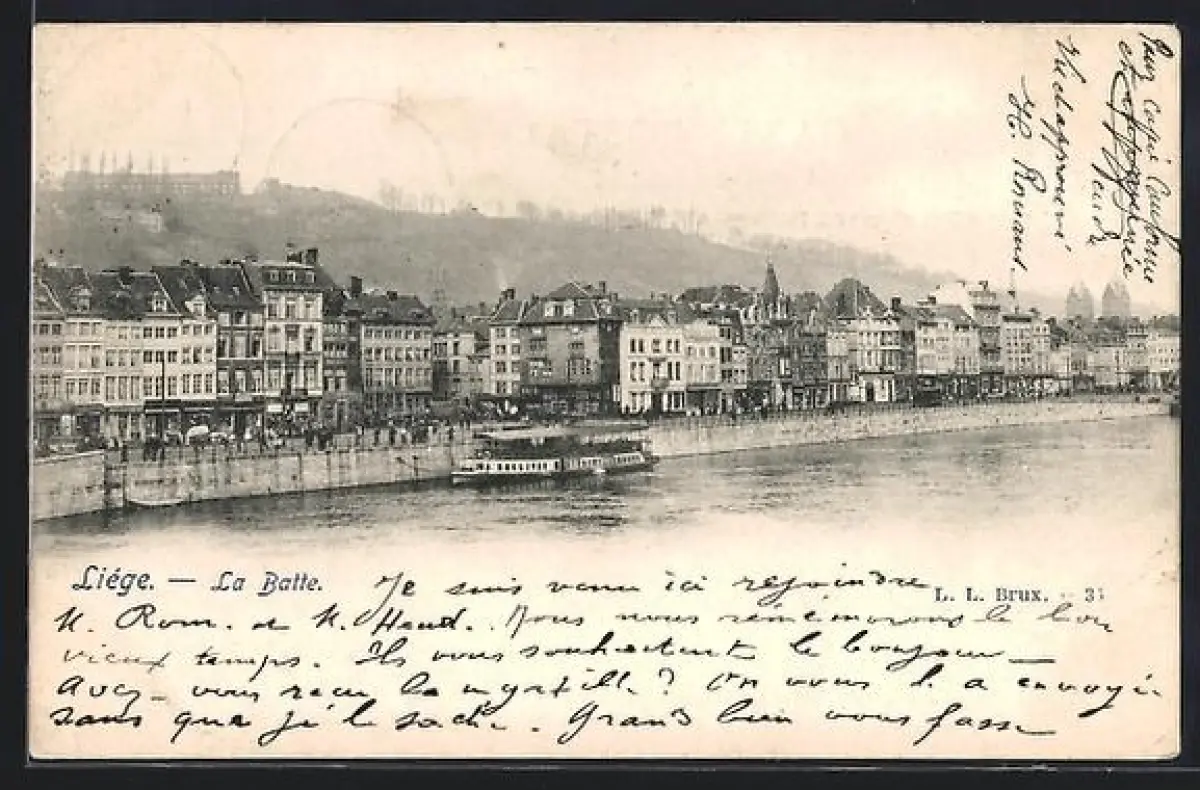 Liége. — La Batte.
L. L. Brux.
Je suis venu ici rejoindre
M. Rom. et M. Haud. Nous nous remémorons le bon
vieux temps. Ils vous souhaitent le bonjour —
Avez-vous reçu la myrtille? On vous l'a envoyée
sans que je le sache. Grand bien vous fasse
Pour Copie Conforme
et approuvée
Vu et approuvé
H.